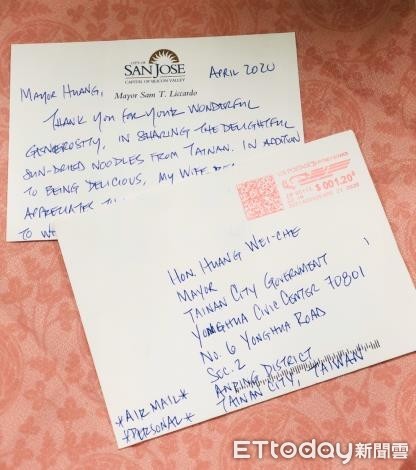 CITY OF
SAN JOSE
CAPITAL OF SILICON VALLEY
Mayor Sam T. Liccardo
APRIL 2020
MAYOR HUANG,
THANK YOU FOR YOUR WONDERFUL
GENEROSITY, IN SHARING THE DELIGHTFUL
SUN-DRIED NOODLES FROM TAINAN. IN ADDITION
TO BEING DELICIOUS, MY WIFE
APPRECIATES
TO
US POSTAGE
$ 001.20
HON. HUANG WEI-CHE
MAYOR
TAINAN CITY GOVERNMENT
YONGHUA CIVIC CENTER 70801
NO. 6 YONGHUA ROAD
SEC. 2
ANPING DISTRICT
TAINAN CITY, TAIWAN
*AIR MAIL*
*PERSONAL*
ETtoday新聞雲